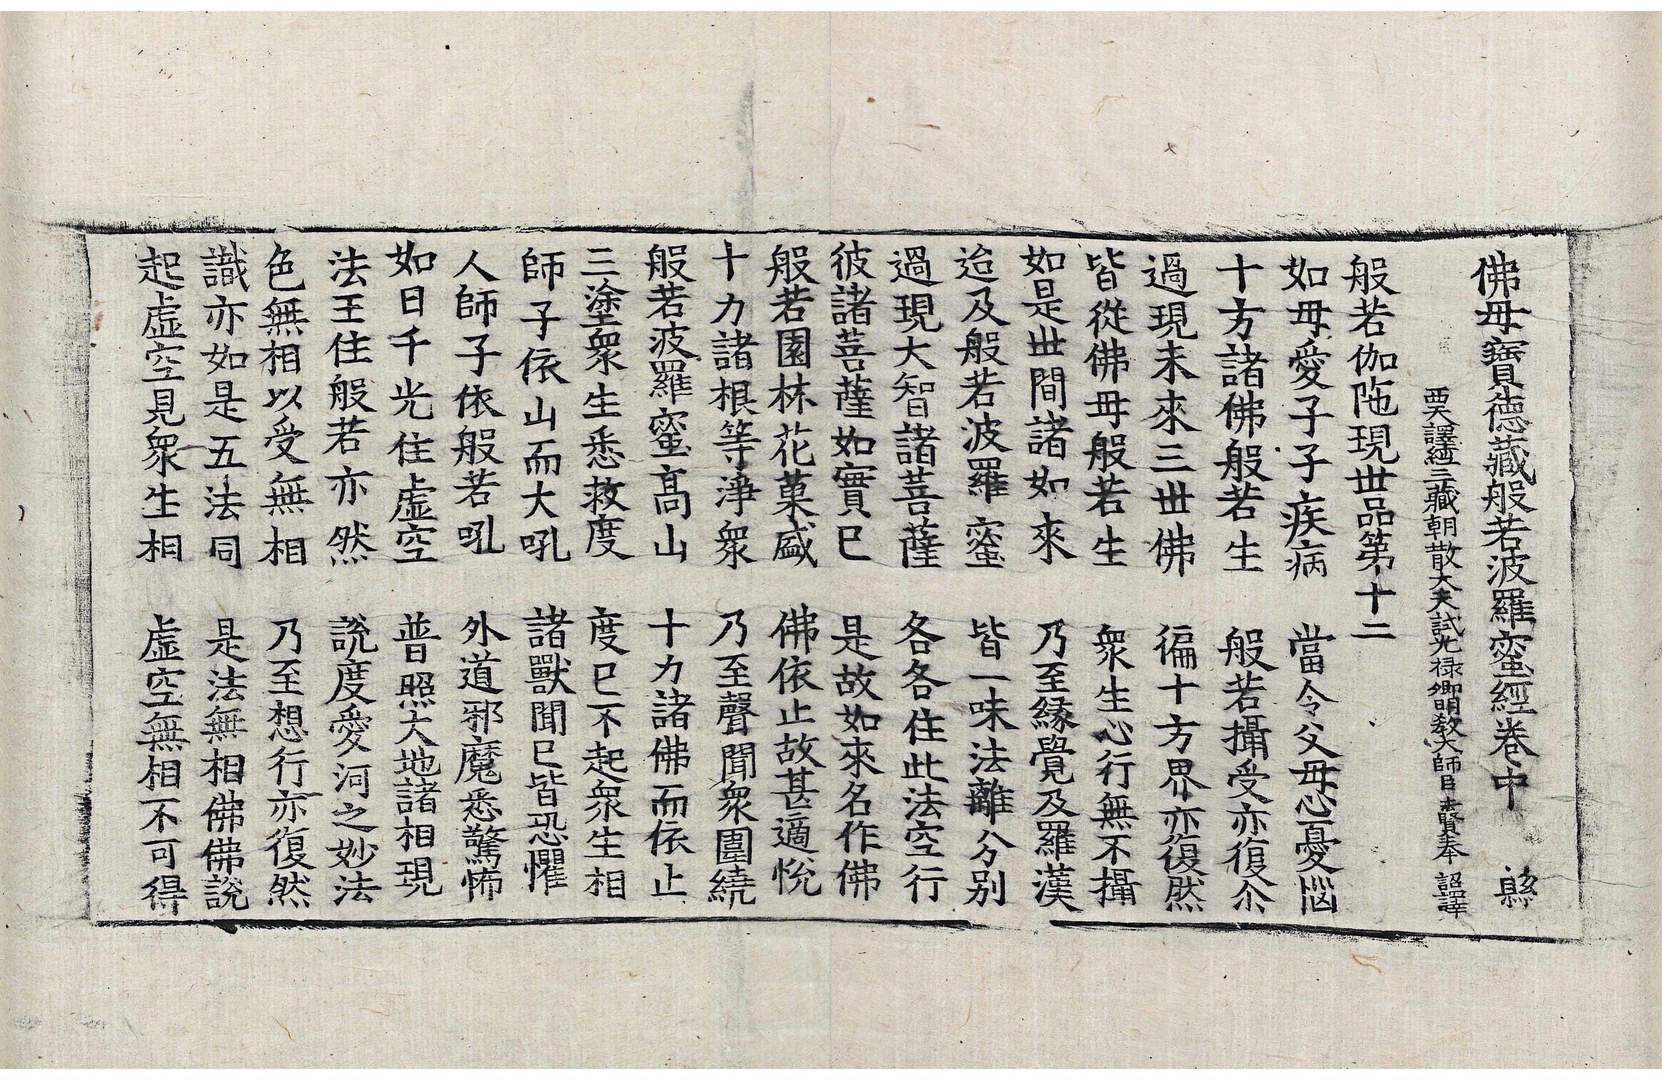 佛母寶德藏般若波羅蜜經卷中 縣
西天譯經三藏朝散大夫試光祿卿明教大師臣法賢奉 詔譯
般若伽陁現世品第十二
如母愛子子疾病 當令父母心憂惱
十方諸佛般若生 般若攝受亦復尒
過現未來三世佛 徧十方界亦復然
皆從佛母般若生 衆生心行無不攝
如是世間諸如來 乃至緣覺及羅漢
迨及般若波羅蜜 皆一味法離分別
過現大智諸菩薩 各各住此法空行
彼諸菩薩如實已 是故如來名作佛
般若園林花菓盛 佛依止故甚適恱
十力諸根等淨衆 乃至聲聞衆圍繞
般若波羅蜜高山 十力諸佛而依止
三塗衆生悉救度 度已不起衆生相
師子依山而大吼 諸獸聞已皆恐懼
人師子依般若吼 外道邪魔悉驚怖
如日千光住虛空 普照大地諸相現
法王住般若亦然 說度愛河之妙法
色無相以受無相 乃至想行亦復然
識亦如是五法同 是法無相佛佛說
起虛空見衆生相 虛空無相不可得